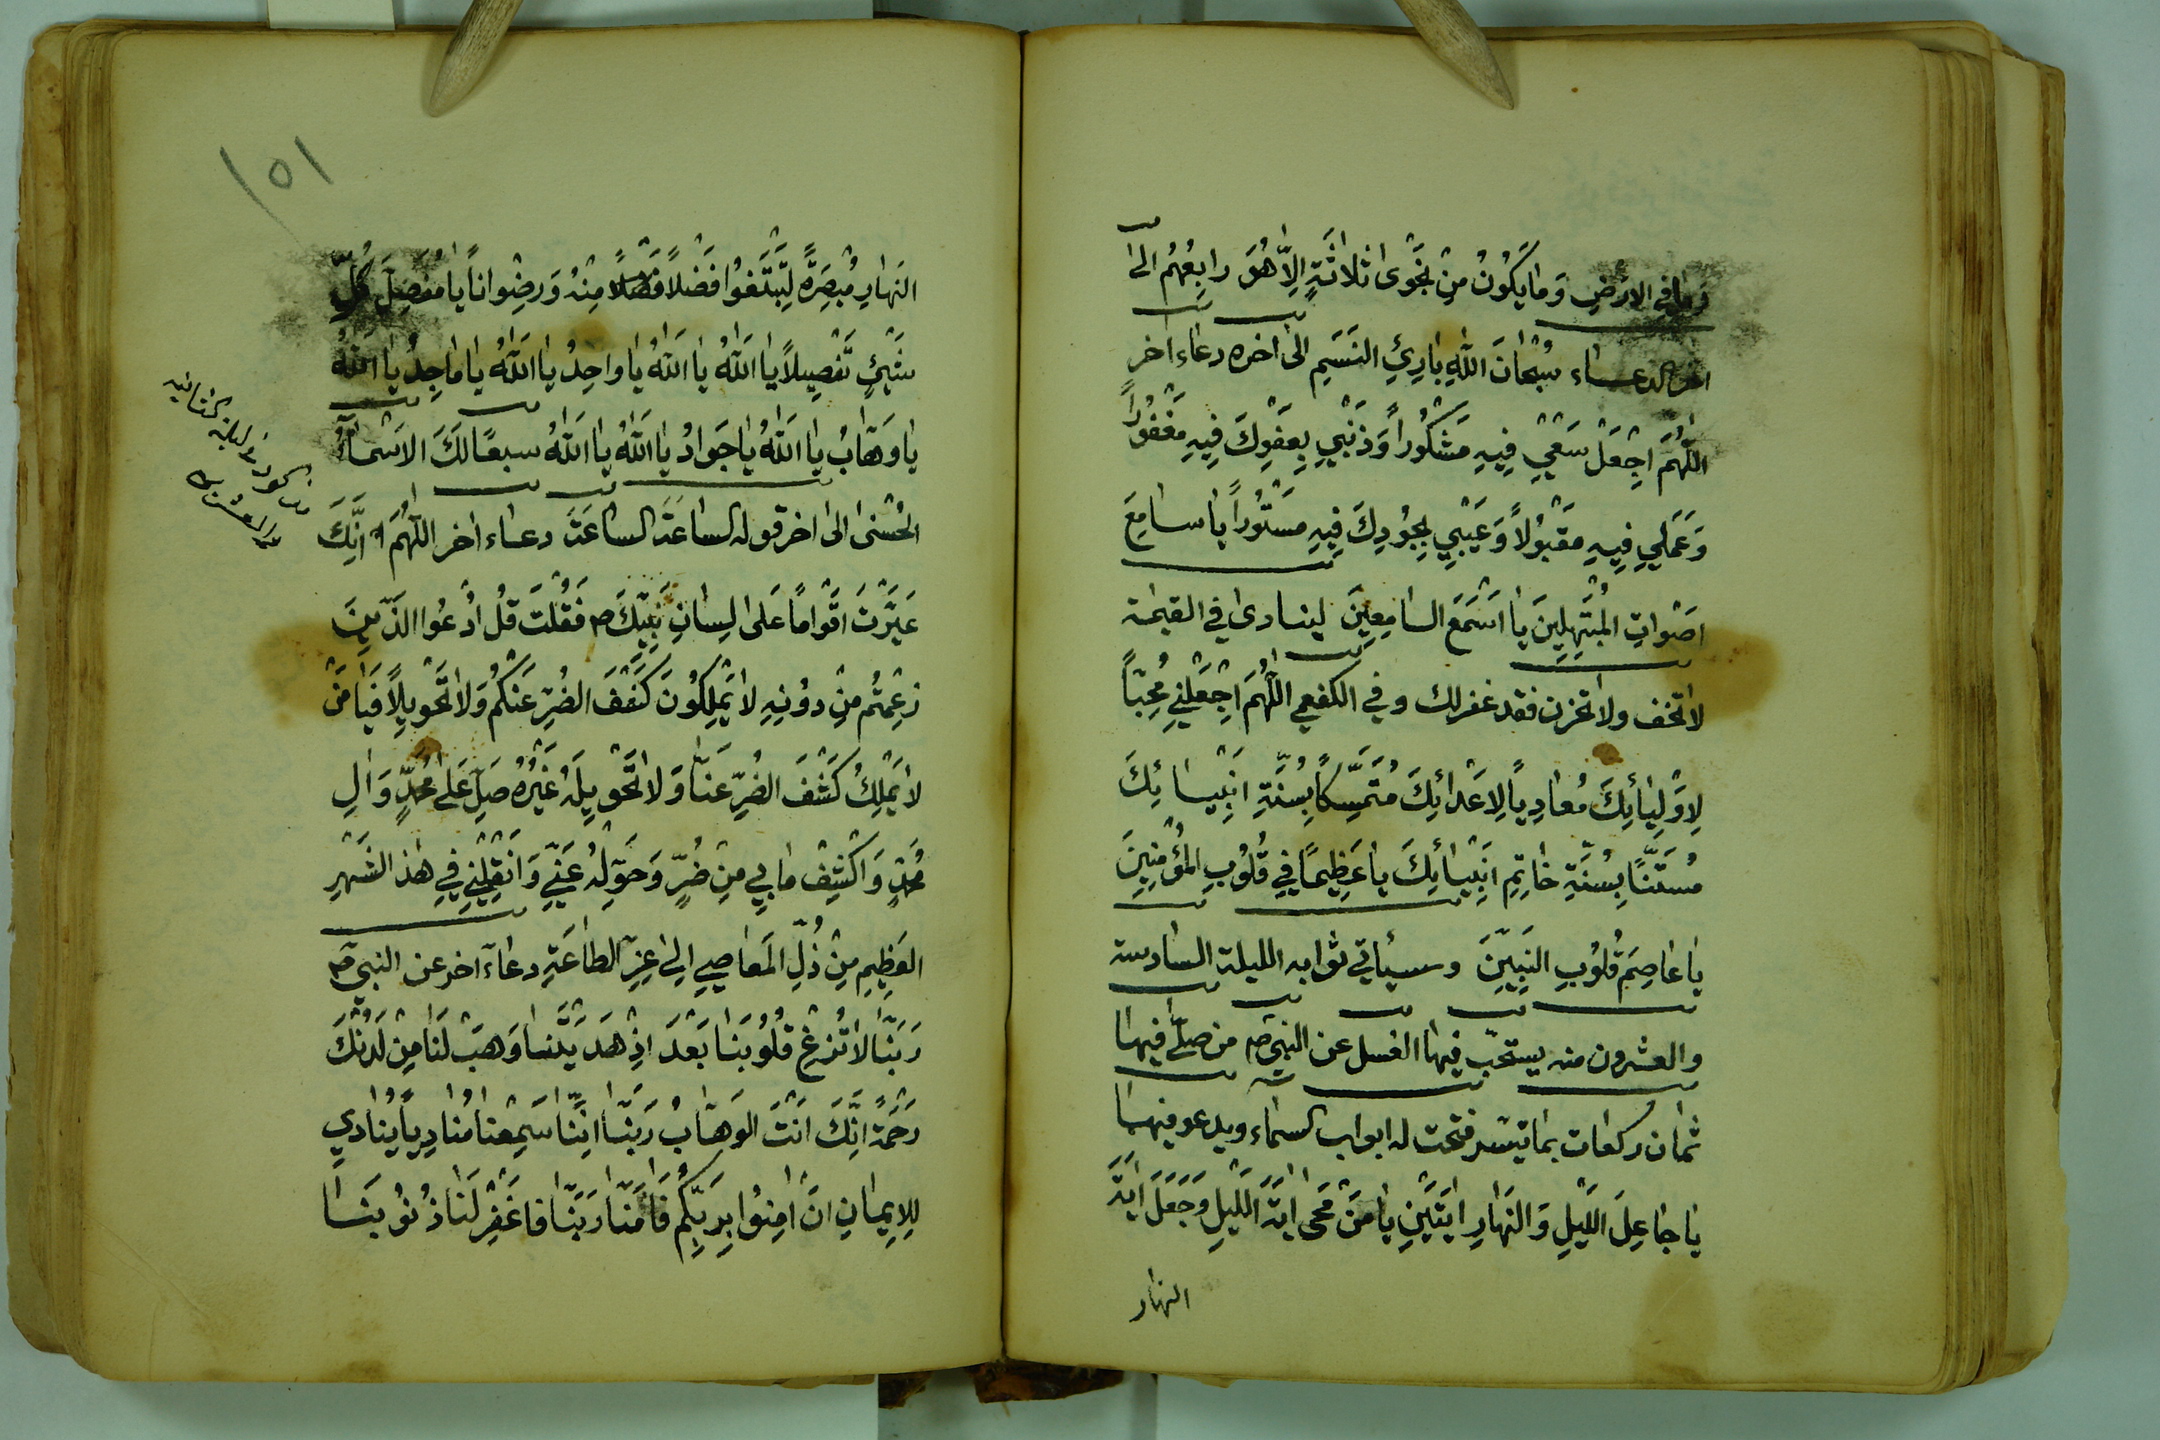 وَمَا فِي الاَرْضِ وَمَا يَكُونُ مِنْ نَجْوىٰ ثَلاثَةٍ اِلاّٰ هُوَ رابِعُهُمْ الىٰ
اخر الدعاء سُبْحانَ اللّٰهِ بارِئِ النَسَمِ الىٰ اخره دعاء اخر
اَللّٰهُمَّ اجْعَلْ سَعْيِي فِيهِ مَشْكُوراً وَذَنْبِي بِعَفْوِكَ فِيهِ مَغْفُوراً
وَعَمَلِي فِيهِ مَقْبُولاً وَعَيْبِي بِجُودِكَ فِيهِ مَسْتُوراً يا سامِعَ
اصْواتِ الْمُبْتَهِلِينَ يا اَسْمَعَ السامِعِينَ لينادىٰ في القيمة
لا تخف ولا تحزن فقد غفر لك وفي الكفعمي اَللّٰهُمَّ اجْعَلْنِي مُحِبّاً
لِاَوْلِيائِكَ مُعادِياً لِاَعْدائِكَ مُتَمَسِّكاً بِسُنَّةِ انْبِيائِكَ
مُسْتَنّاً بِسُنَّةِ خاتِمِ انْبِيائِكَ يا عَظِيماً فِي قُلُوبِ الْمُؤْمِنِينَ
يا عاصِمَ قُلُوبِ النَبِيّينَ وسيأتي ثوابه الليلة السادسة
والعشرون منه يستحبّ فيها الغسل عن النبي ص من صلّى فيها
ثمان ركعات بما تيسر فتحت له ابواب السماء ويدعو فيها
يا جاعِلَ اللَيْلِ وَالنَهارِ ايَتَيْنِ يا مَنْ مَحىٰ ايَةَ اللَيْلِ وَجَعَلَ ايَةَ
النهار
١٥١
النَهارِ مُبْصِرَةً لِيَبْتَغُوا فَضْلاً فَضْلاً مِنْهُ وَرِضْواناً يا مُفَصِلَ كُلِّ
شَيْئٍ تَفْصِيلاً يا اَللّٰهُ يا اَللّٰهُ يا واحِدُ يا اَللّٰهُ يا ماجِدُ يا اَللّٰهُ
يا وَهّابُ يا اَللّٰهُ يا جَوادُ يا اَللّٰهُ يا اَللّٰهُ سبعًا لَكَ الاَسْماءُ
الحُسْنىٰ الىٰ اخر قوله الساعَةَ الساعَةَ دعاء اخر اَللّٰهُمَّ اِنَّكَ
عَيَّرْتَ اَقْواماً عَلىٰ لِسانِ نَبِيِّكَ ص فَقُلْتَ قُلِ ادْعُوا الَذِينَ
زَعَمْتُمْ مِنْ دُونِهِ لا يَمْلِكُونَ كَشْفَ الضُرِّ عَنْكُمْ وَلا تَحْوِيلاً فَيا مَنْ
لا يَمْلِكُ كَشْفَ الضُرِّ عَنّا وَلا تَحْوِيلَهُ غَيْرُهُ صَلِّ عَلىٰ مُحَمَّدٍ وَالِ
مُحَمَّدٍ وَاكْشِفْ ما بِي مِنْ ضُرٍّ وَحَوِّلْهُ عَنِّي وَانْقُلْنِي فِي هٰذَا الشَهْرِ
العَظِيمِ مِنْ ذُلِّ الْمَعاصِي اِلىٰ عِزِّ الطاعَةِ دعاء آخر عن النبي ص
رَبَّنا لا تُزِغْ قُلُوبَنا بَعْدَ اِذْ هَدَيْتَنا وَهَبْ لَنا مِنْ لَدُنْكَ
رَحْمَةً اِنَّكَ اَنْتَ الوَهّابُ رَبَّنا اِنَّنا سَمِعْنا مُنادِياً يُنادِي
لِلاِيمانِ اَنْ امِنُوا بِرَبِّكُمْ فَامَنّا رَبَّنا فَاغْفِرْ لَنا ذُنُوبَنا